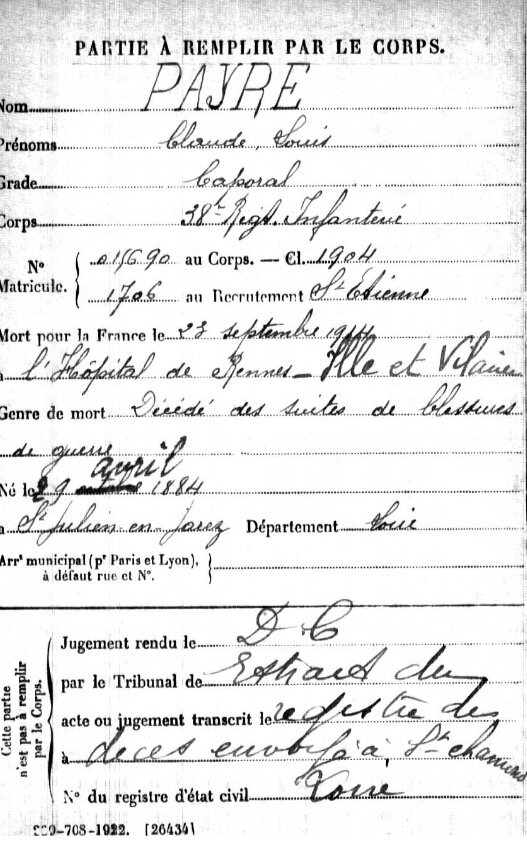 PARTIE À REMPLIR PAR LE CORPS.
Nom PAYRE
Prénoms Claude, Louis
Grade Caporal
Corps 38e Régt. Infanterie
No Matricule. { 015690 au Corps. — Cl. 1904
1706 au Recrutement St Etienne
Mort pour la France le 23 septembre 1914
à l'Hôpital de Rennes - Ille et Vilaine
Genre de mort Décédé des suites de blessures
de guerre
avril
Né le 29 1884
à St Julien-en-Jarez Département Loire
Arrt municipal (pr Paris et Lyon),
à défaut rue et No.
Cette partie n'est pas à remplir par le Corps.
Jugement rendu le D C
par le Tribunal de Extrait du
acte ou jugement transcrit le registre des
à décès envoyé à St chamond
No du registre d'état civil Loire
-708-1922. [26434]